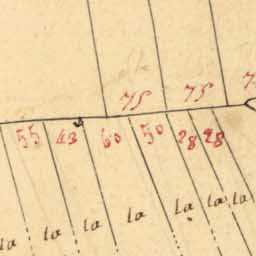 75 75 7
55 43 60 50 28 28
la la la la la la la